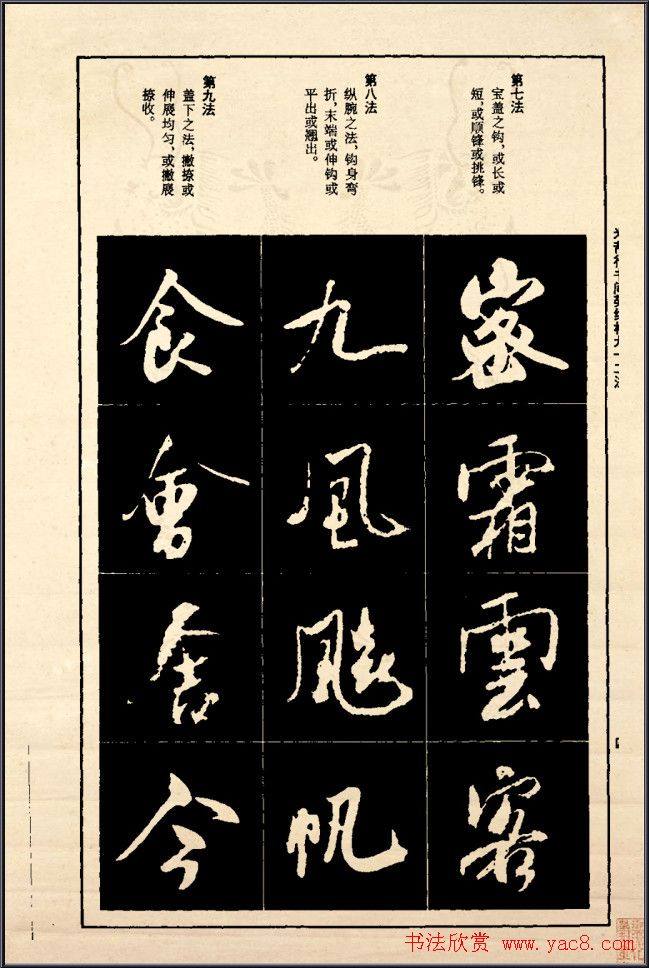 第七法
宝盖之钩，或长或
短，或顺锋或挑锋。
密
霜
雲
客
第八法
纵腕之法，钩身弯
折，末端或伸钩或
平出或翘出。
九
風
帆
第九法
盖下之法，撇捺或
伸展均匀，或撇展
捺收。
食
會
舍
今
书法欣赏 www.yac8.com